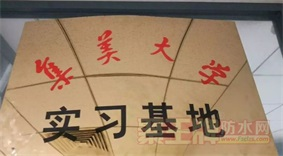 集美大学
实习基地
防水网